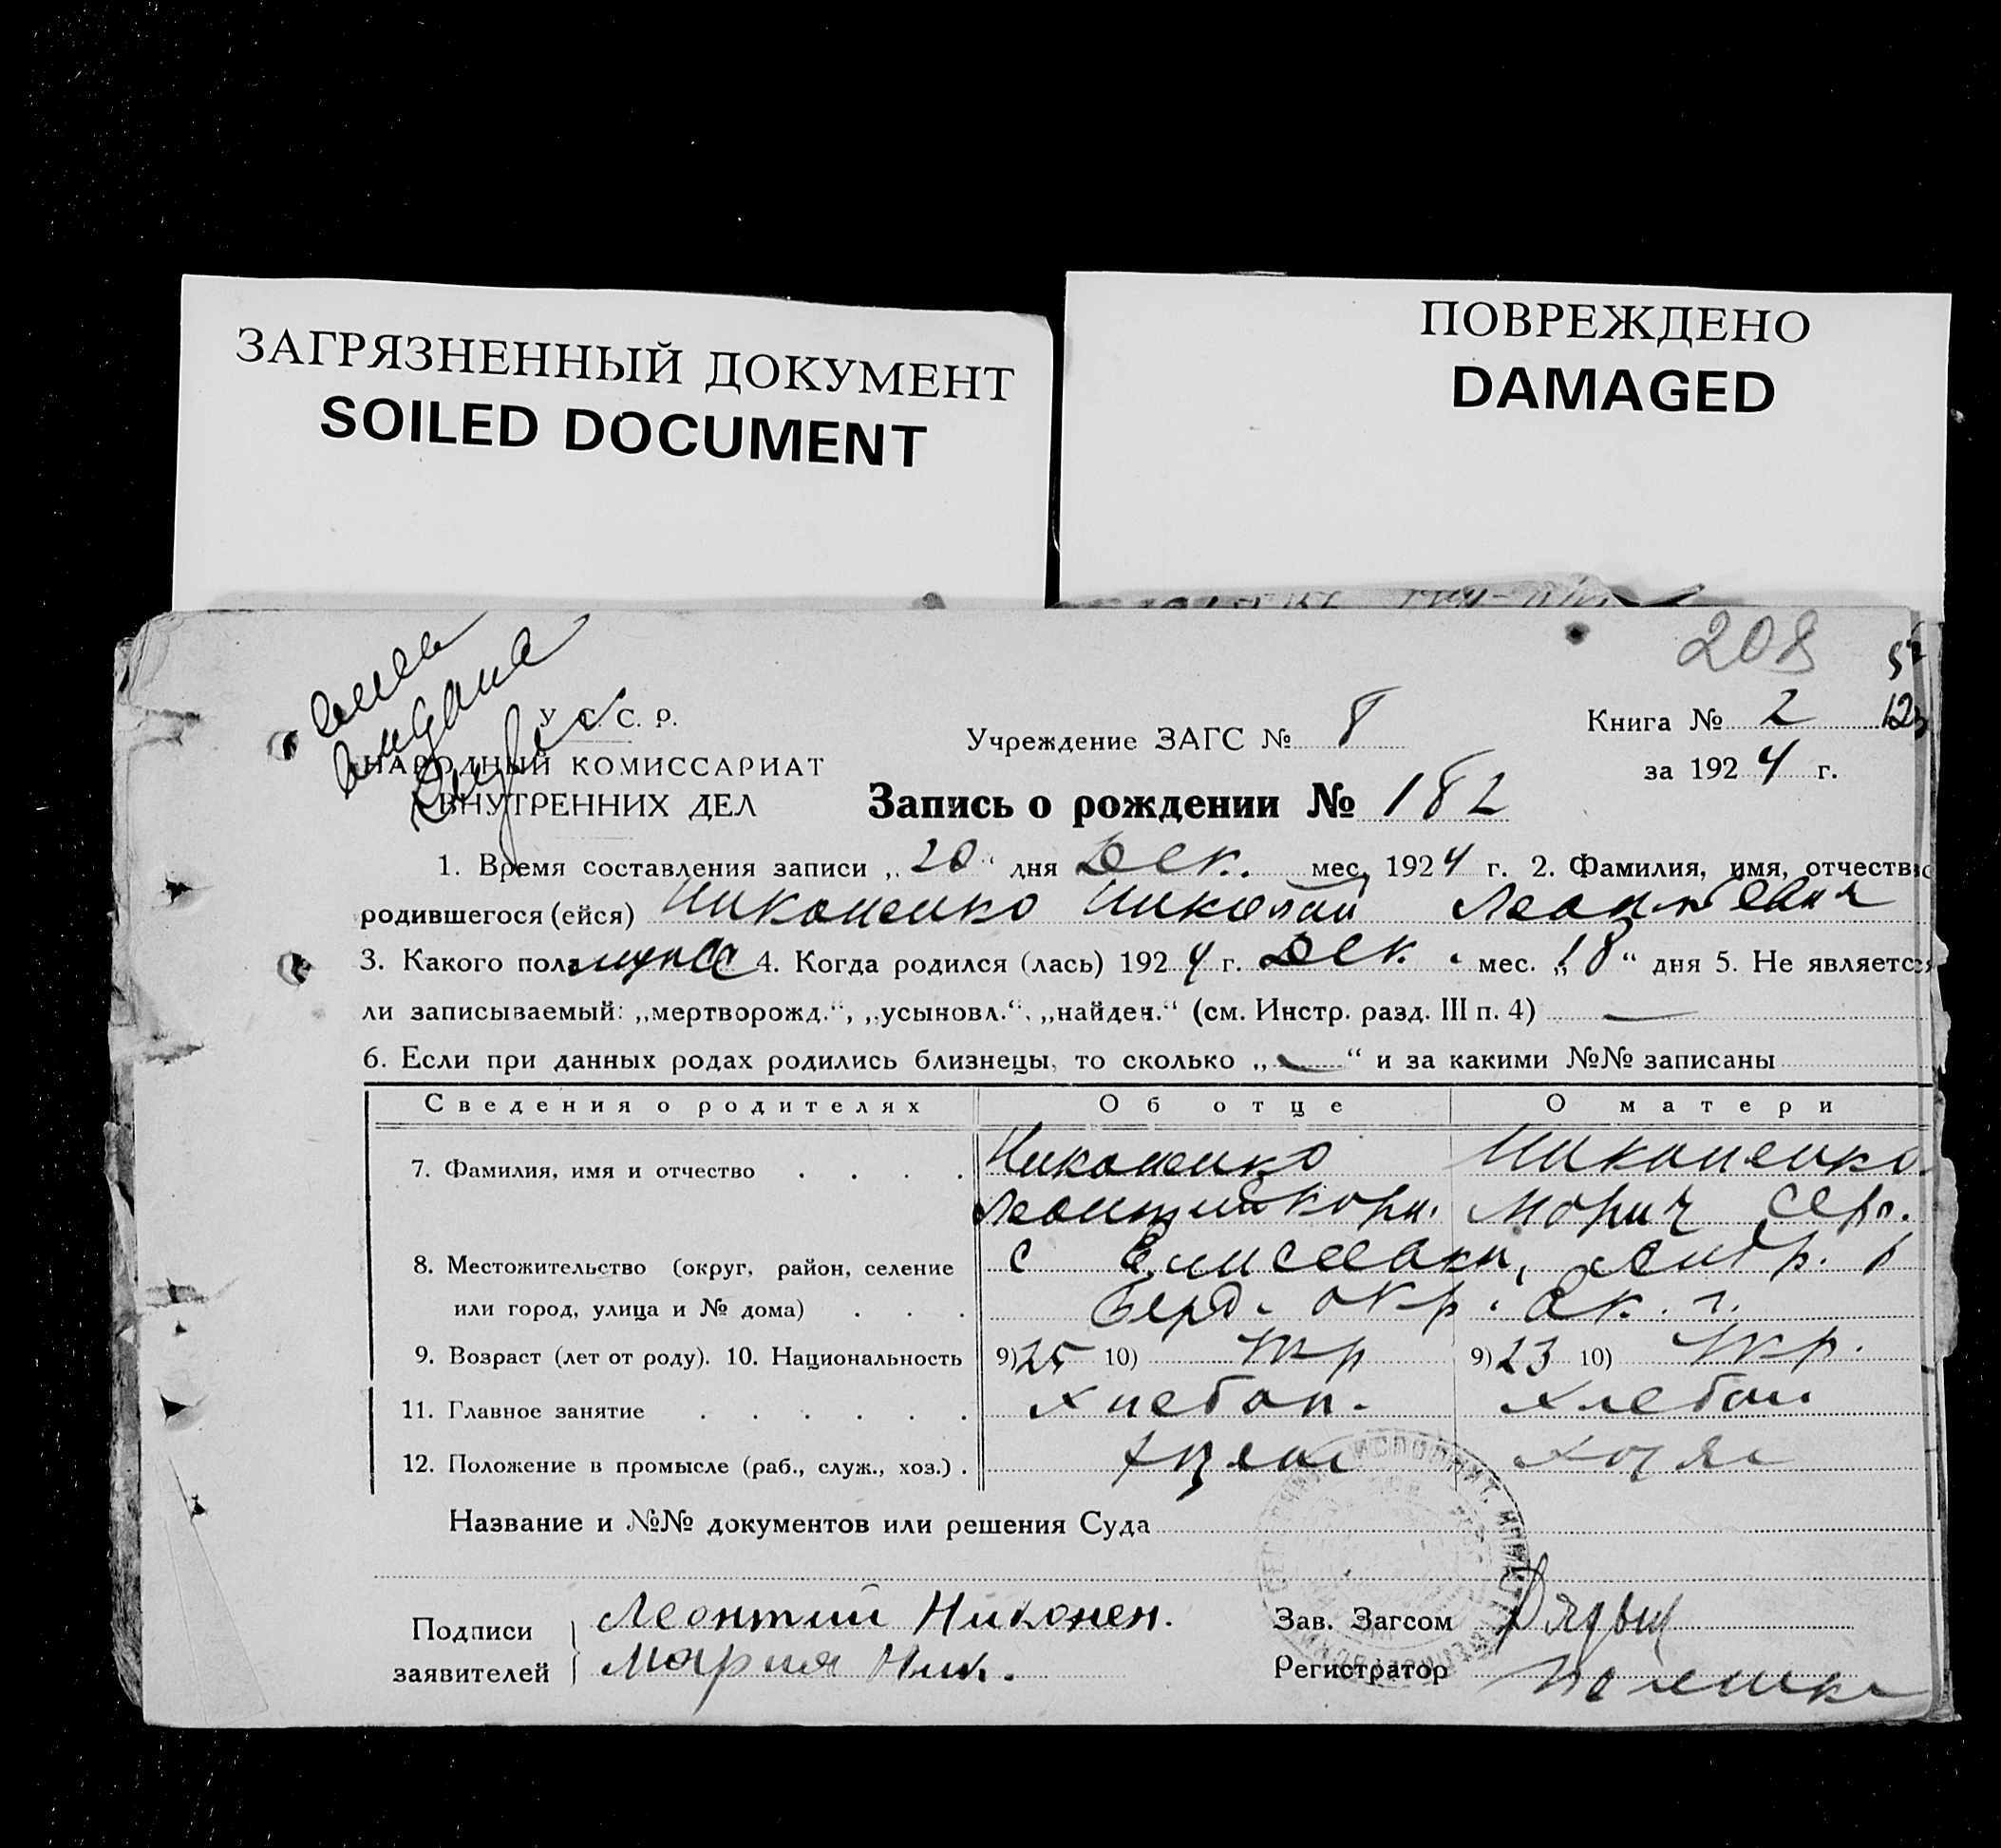 ЗАГРЯЗНЕННЫЙ ДОКУМЕНТ
SOILED DOCUMENT
ПОВРЕЖДЕНО
DAMAGED
208
выдана
У. С. С. Р.
НАРОДНЫЙ КОМИССАРИАТ
ВНУТРЕННИХ ДЕЛ
Учреждение ЗАГС № 8
Книга № 2
за 1924 г.
Запись о рождении № 182
1. Время составления записи „20“ дня Дек. мес. 1924 г. 2. Фамилия, имя, отчество
родившегося (ейся) Никоненко Николай Леонтьевич
3. Какого пола 4. Когда родился (лась) 1924 г. Дек. мес. „18“ дня 5. Не является
ли записываемый: „мертворожд.“, „усыновл.“, „найден.“ (см. Инстр. разд. III п. 4) —
6. Если при данных родах родились близнецы, то сколько „—“ и за какими №№ записаны
Сведения о родителях Об отце О матери
7. Фамилия, имя и отчество . . . . Никоненко Никоненко
Леонтий Корн. Мория
8. Местожительство (округ, район, селение с Елисеевки,
или город, улица и № дома) . . . Берд. окр.
9. Возраст (лет от роду). 10. Национальность 9) 25 10) Укр 9) 23 10) Укр.
11. Главное занятие . . . . . . Хлебоп. Хлебоп
12. Положение в промысле (раб., служ., хоз.) . Хозяин Хозяй
Название и №№ документов или решения Суда
Подписи заявителей
Леонтий Никонен.
Мария Ник.
Зав. Загсом
Регистратор